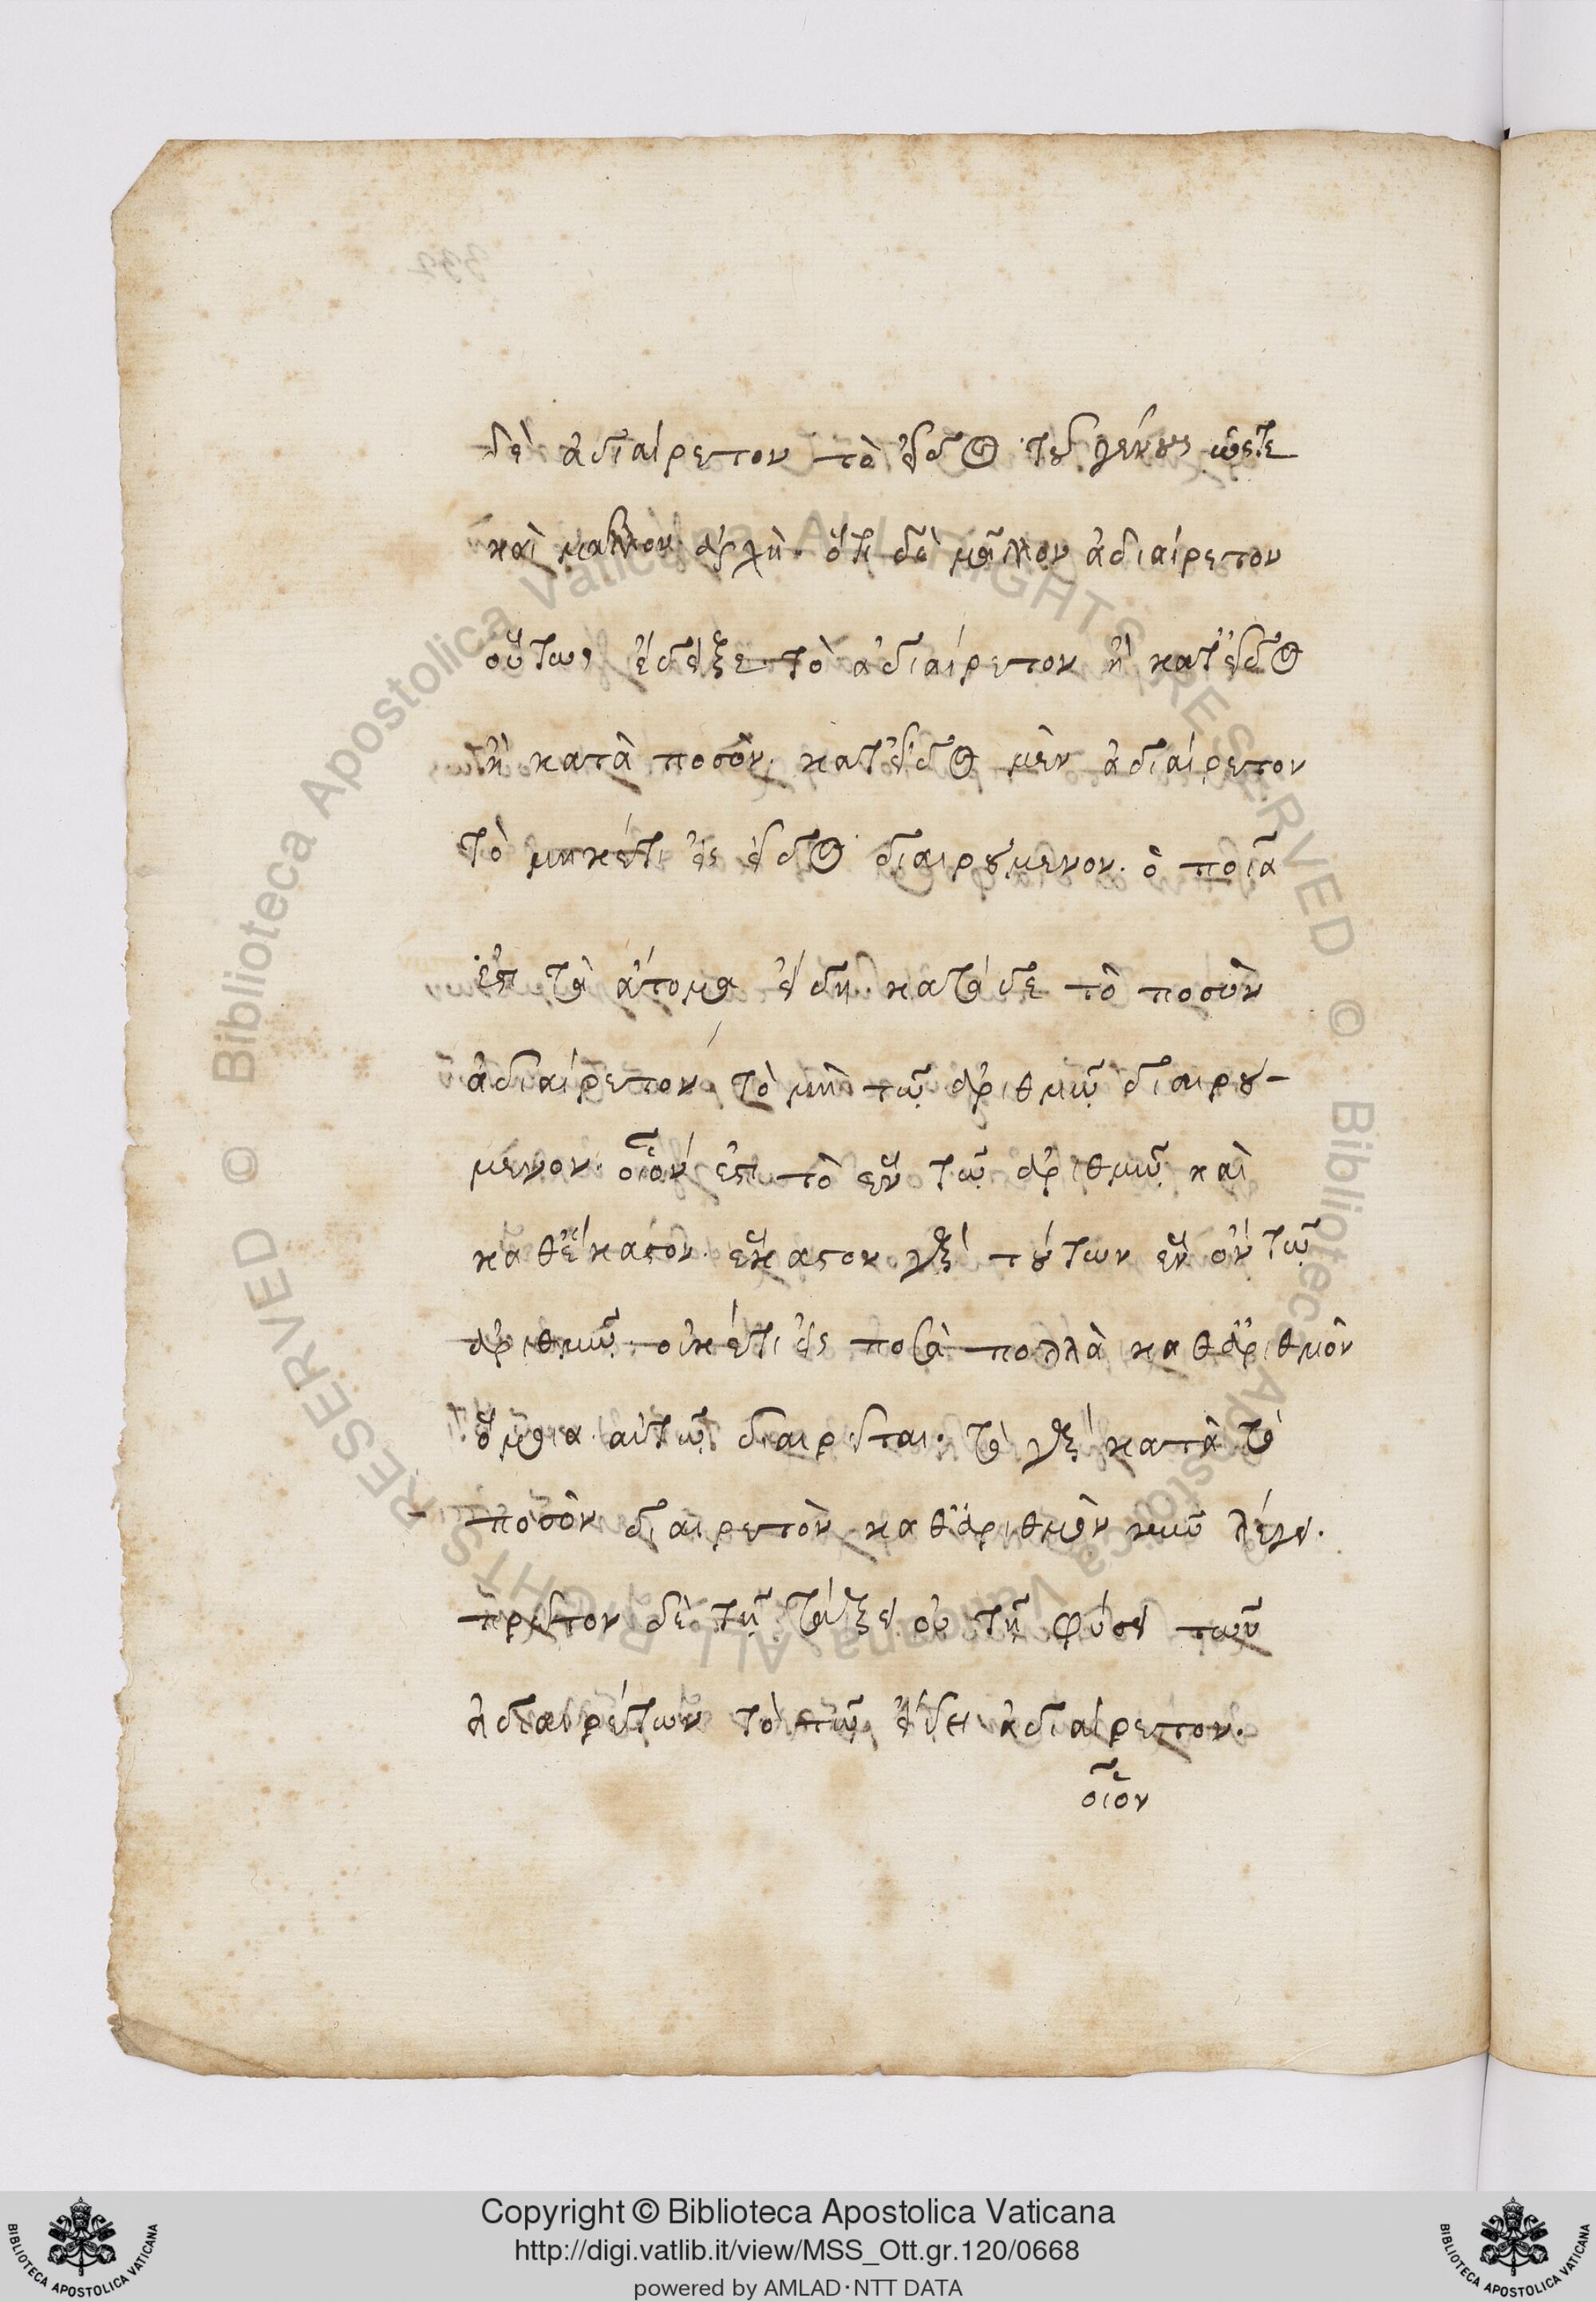 δὲ ἀδιαίρετον τὸ εἶδος τοῦ γένους ὥστε
καὶ μᾶλλον ἀρχή. ὅτι δὲ μᾶλλον ἀδιαίρετον
οὕτως ἔδειξε τὸ ἀδιαίρετον ἢ κατ' εἶδος
ἢ κατὰ ποσόν. κατ' εἶδος μὲν ἀδιαίρετον
τὸ μηκέτι εἰς εἶδος διαιρούμενον. ὁποῖα
ἐστι τὰ ἄτομα εἴδη. κατὰ δε τὸ ποσὸν
ἀδιαίρετον, τὸ μὴ τῷ ἀριθμῷ διαιρού-
μενον. οἷόν ἐστι τὸ ἓν τῷ ἀριθμῷ καὶ
καθ' ἕκαστον. ἕκαστον γὰρ τούτων ἓν ὂν τῷ
ἀριθμῷ οὐκέτι εἰς ποσὰ πολλὰ καθ' ἀριθμὸν
ὅμοια αὐτῷ διαιρεῖται. τὸ γὰρ κατὰ τὸ
ποσὸν διαιρετὸν καθ' ἀριθμὸν νῦν λέγει.
πρῶτον δὲ τῇ τάξει οὐ τῇ φύσει τῶν
ἀδιαιρέτων τὸ τῷ εἴδει ἀδιαίρετον.
οἷον
Copyright © Biblioteca Apostolica Vaticana
http://digi.vatlib.it/view/MSS_Ott.gr.120/0668
powered by AMLAD·NTT DATA